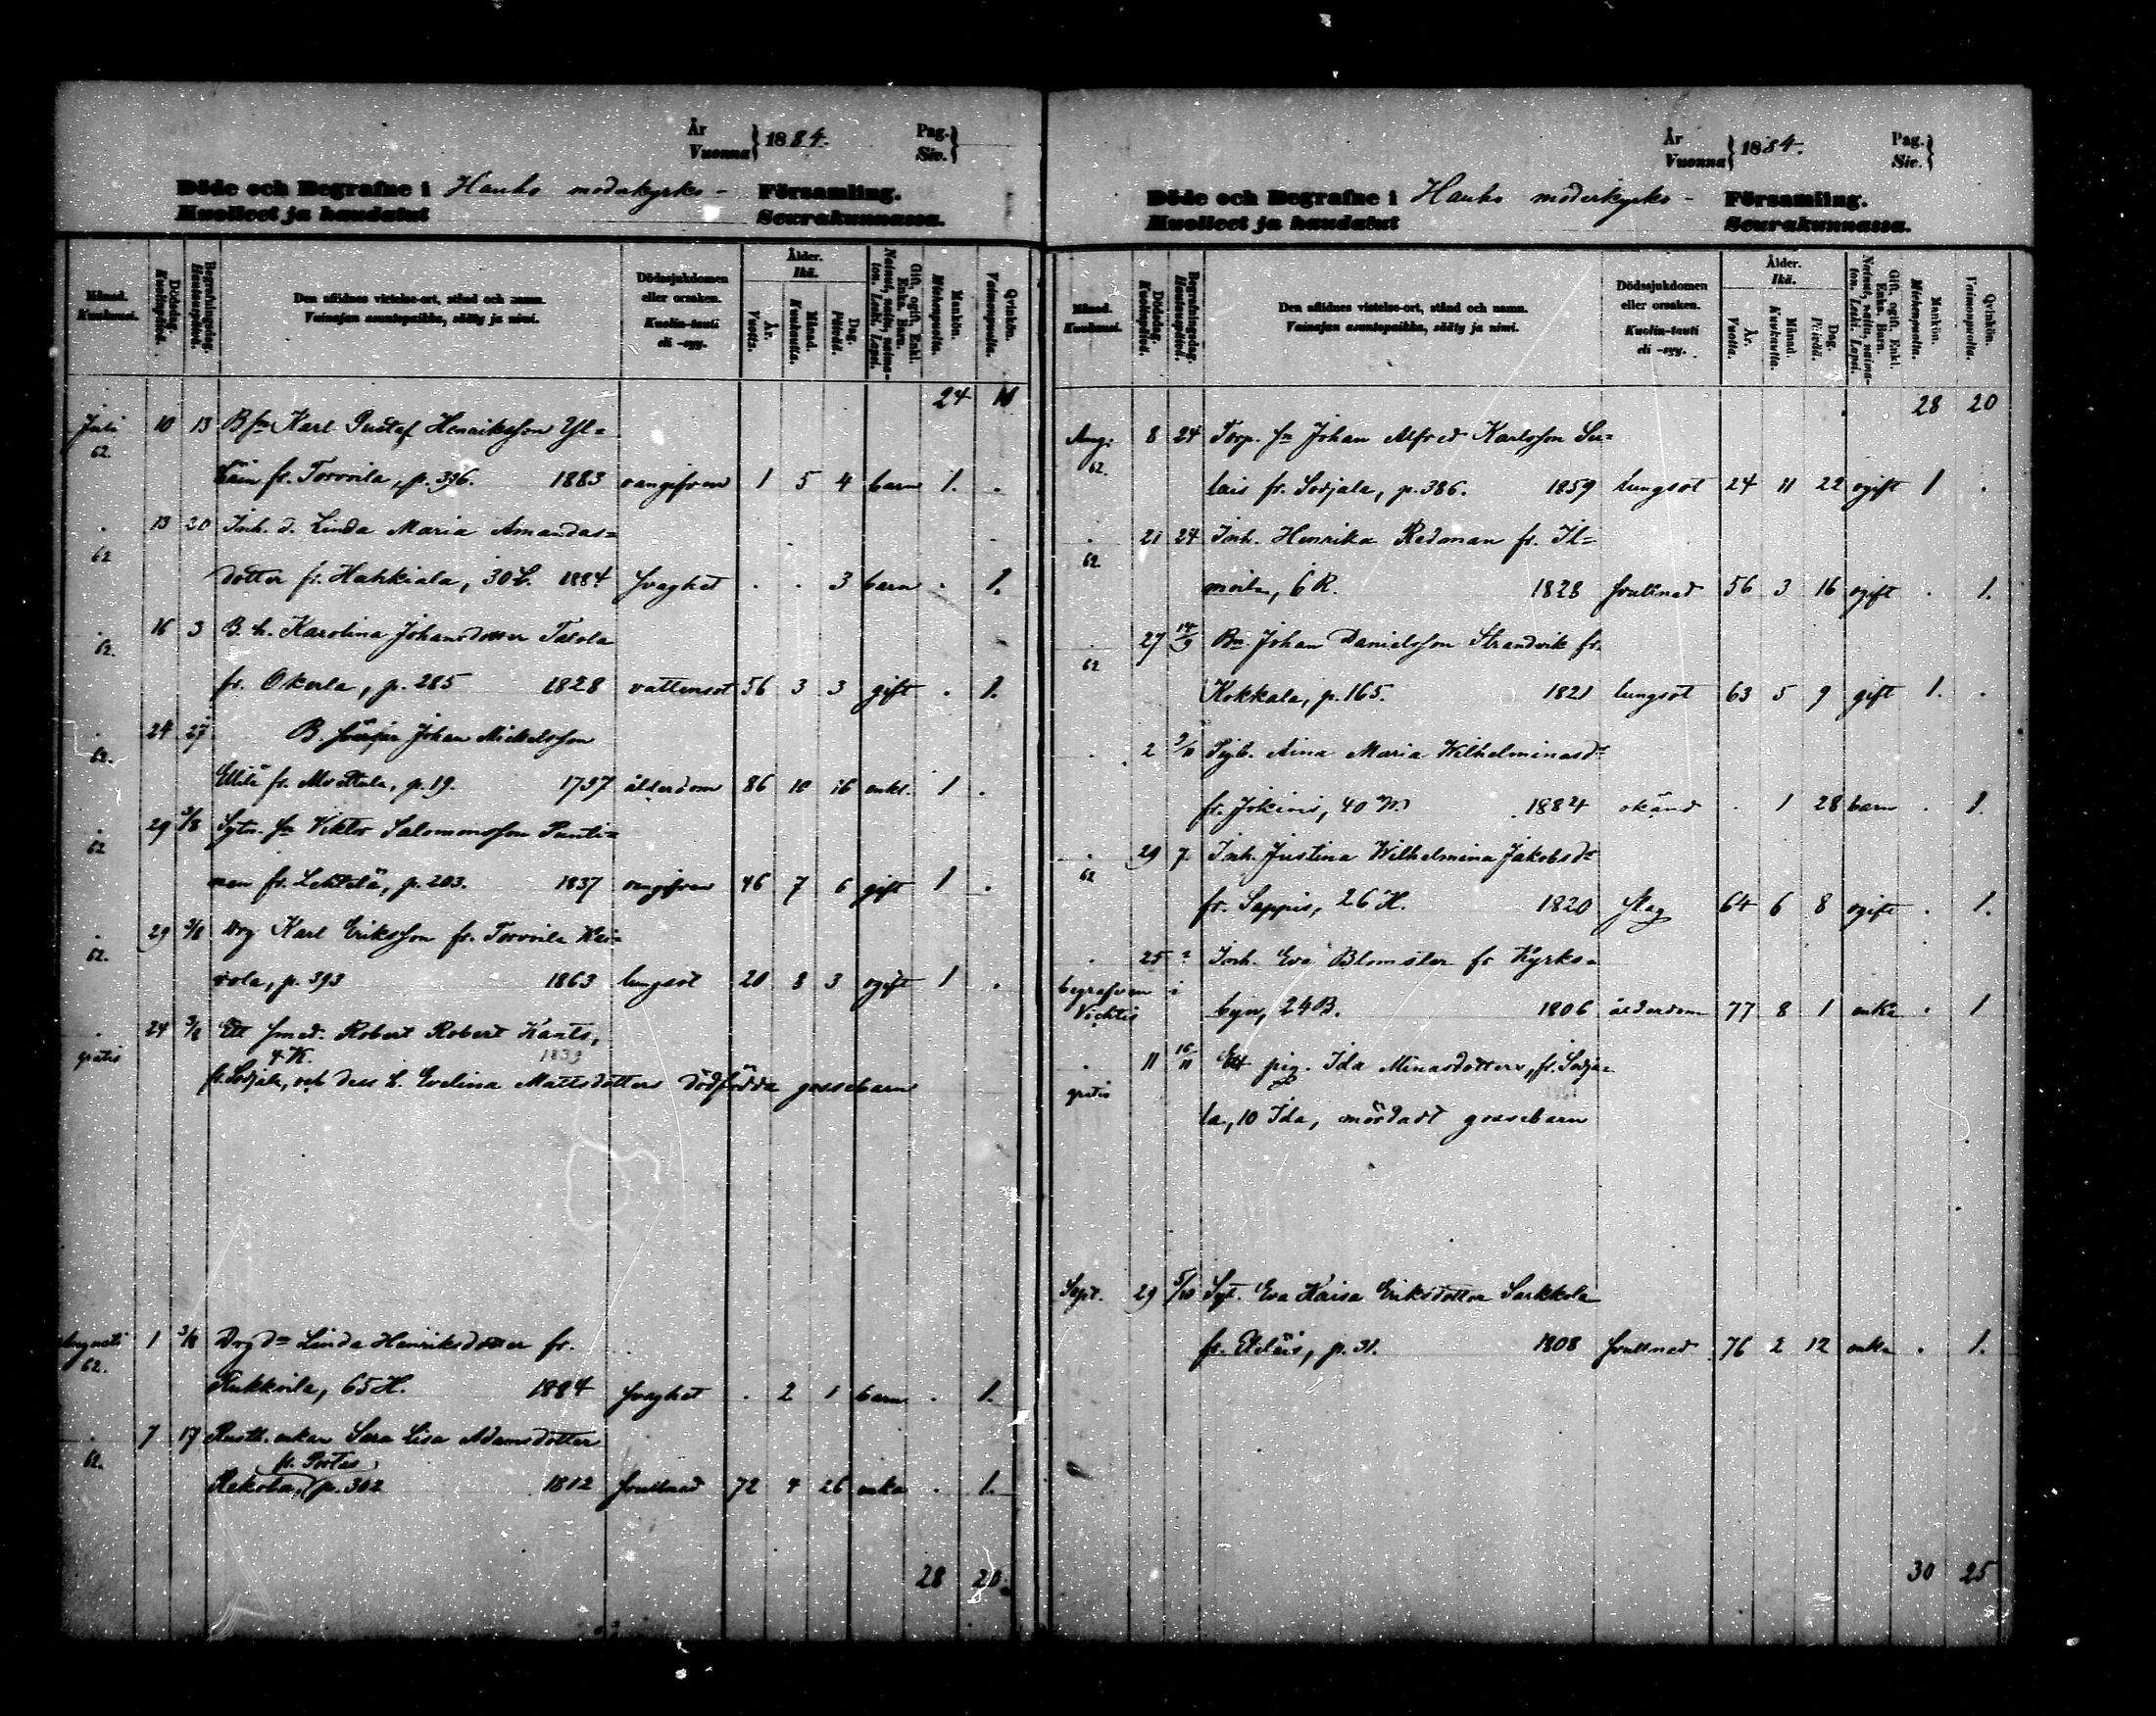 År
Vuonna } 1884.
Pag.
Siv. }
Döde och Begrafne i Hauho moderkyrko- Församling.
Kuolleet ja haudatut Seurakunnassa.
Månad. Kuukausi.
Dödsdag. Kuolinpäivä.
Begrafningsdag. Hautauspäivä.
Den aflidnes vistelse-ort, stånd och namn.
Vainajan asuntopaikka, sääty ja nimi.
Dödssjukdomen eller orsaken.
Kuolin-tauti eli -syy.
Ålder. Ikä.
År. Vuotta.
Månad. Kuukautta.
Dag. Päivää.
Gift, ogift, Enkl. Enka. Barn.
Nainut, naitu, naimaton. Leski. Lapsi.
Mankön. Miehenpuolta.
Qvinkön. Vaimonpuolta.
24
Juli 10 13 Bsn Karl Gustaf Henriksson Yl=
62. fr. Torvvila, p. 396. 1883 vangifven 1 5 4 barn 1. .
. 13 20 Inh. d. Linda Maria Amandas=
62 dotter fr. Hahkiala, 30 L. 1884 svaghet . . 3 barn . 1.
. 16 3 B. h. Karolina Johansdotter Talola
62. fr. Okerla, p. 285 1828 vattensot 56 3 3 gift . 1.
. 24 27 B. svärfar Johan Mickelsson
62. Ellilä fr. p. 19. 1797 ålderdom 86 10 16 enkl. 1 .
. 29 3/8 Sytn. sn Viktor Salomonsson Punti=
62 nen fr. Lehtelä, p. 203. 1837 vangifven 46 7 6 gift 1 .
. 29 3/8 Drg Karl Eriksson fr. Torvvila
62. vola, p. 393 1863 lungsot 20 8 3 ogift 1 .
. 24 3/8 Ett smed. Robert Robert Kants,
gratis 4 K. 1839
fr. Sodjala, och dess h. Evelina Mattsdotters dödfödda gossebarn
Augusti 1 3/8 Drg dr Linda Henriksdotter fr.
62. Rukkoila, 65 H. 1884 svaghet . 2 1 barn . 1.
. 7 17 Rusth. enkan Sara Lisa Adamsdotter
62. fr. Portas
Rekola, p. 302 1812 svullnad 72 4 26 enka . 1.
28 20
År
Vuonna } 1884.
Pag.
Siv. }
Döde och Begrafne i Hauho moderkyrko- Församling.
Kuolleet ja haudatut Seurakunnassa.
Månad. Kuukausi.
Dödsdag. Kuolinpäivä.
Begrafningsdag. Hautauspäivä.
Den aflidnes vistelse-ort, stånd och namn.
Vainajan asuntopaikka, sääty ja nimi.
Dödssjukdomen eller orsaken.
Kuolin-tauti eli -syy.
Ålder. Ikä.
År. Vuotta.
Månad. Kuukautta.
Dag. Päivää.
Gift, ogift, Enkl. Enka. Barn.
Nainut, naitu, naimaton. Leski. Lapsi.
Mankön. Miehenpuolta.
Qvinkön. Vaimonpuolta.
28 20
Aug: 8 24 Torp. sn Johan Alfred Karlsson
62. lais fr. Sodjala, p. 386. 1859 lungsot 24 11 22 ogift 1 .
. 21 24 Inh. Henrika Redman fr. Il=
62. moila, 6 R. 1828 svullnad 56 3 16 ogift . 1.
. 27 14/9 Bn. Johan Danielsson Strandvik fr.
62 Kokkala, p. 165. 1821 lungsot 63 5 9 gift 1. .
. 2 Aina Maria Wilhelminasdr
fr. Jokinis, 40 W. 1884 okänd . 1 28 barn . 1.
. 29 7 Inh. Justina Wilhelmina Jakobsdr
62 fr. Sappis, 26 H. 1820 slag 64 6 8 ogift . 1.
. 25 ? Inh. Eva Blomster fr Kyrko=
begrafven i
Vichtis byn, 24 B. 1806 ålderdom 77 8 1 enka . 1
. 11 16/11 Ett pig. Ida Minasdotters, fr. Sodja=
gratis la, 10 Ida, mördadt gossebarn
Sept. 29 5/10 Syt. Eva Kaisa Eriksdotter Sarkkola
fr. Eteläis, p. 31. 1808 svullnad 76 2 12 enka . 1.
30 25